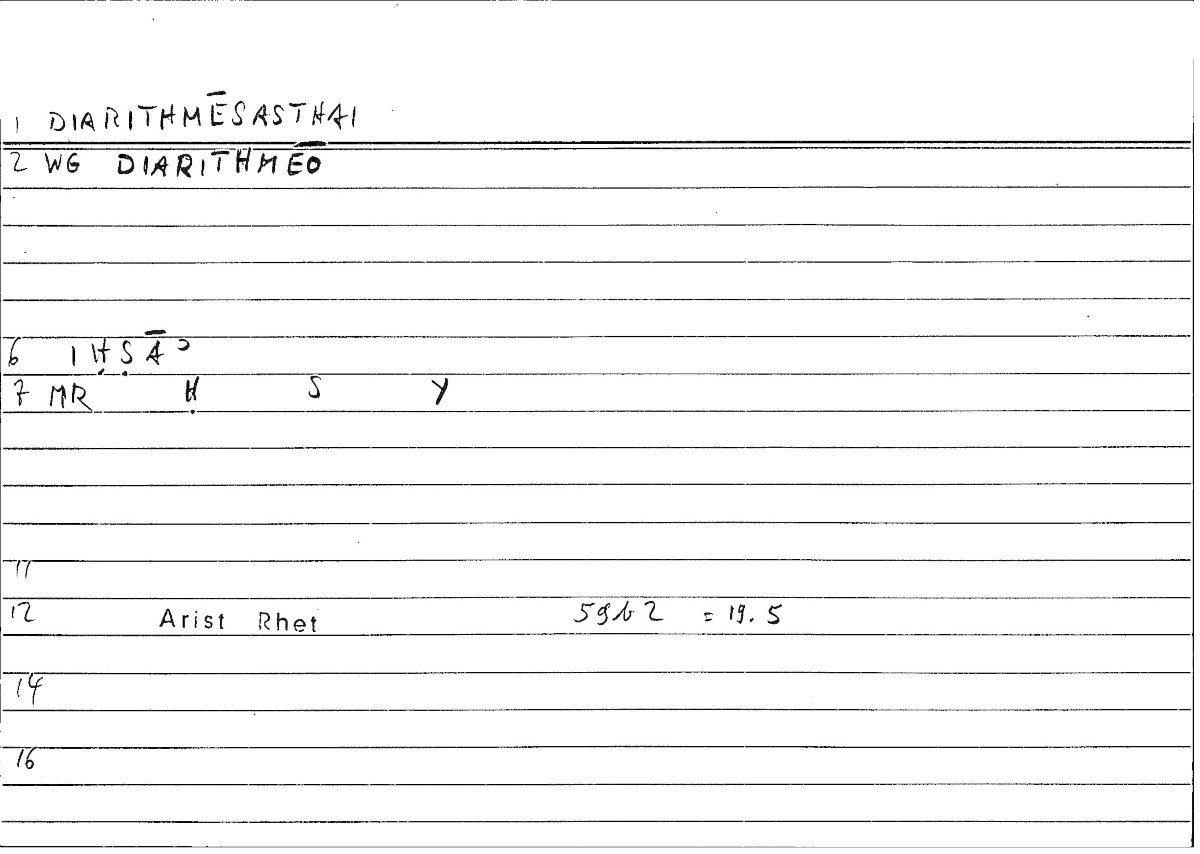 1 DIARITHMĒSASTHAI
2 WG DIARITHMĒO
6 IḤṢĀʾ
7 MR Ḥ S Y
11
12 Arist Rhet 59b2 = 19.5
14
16